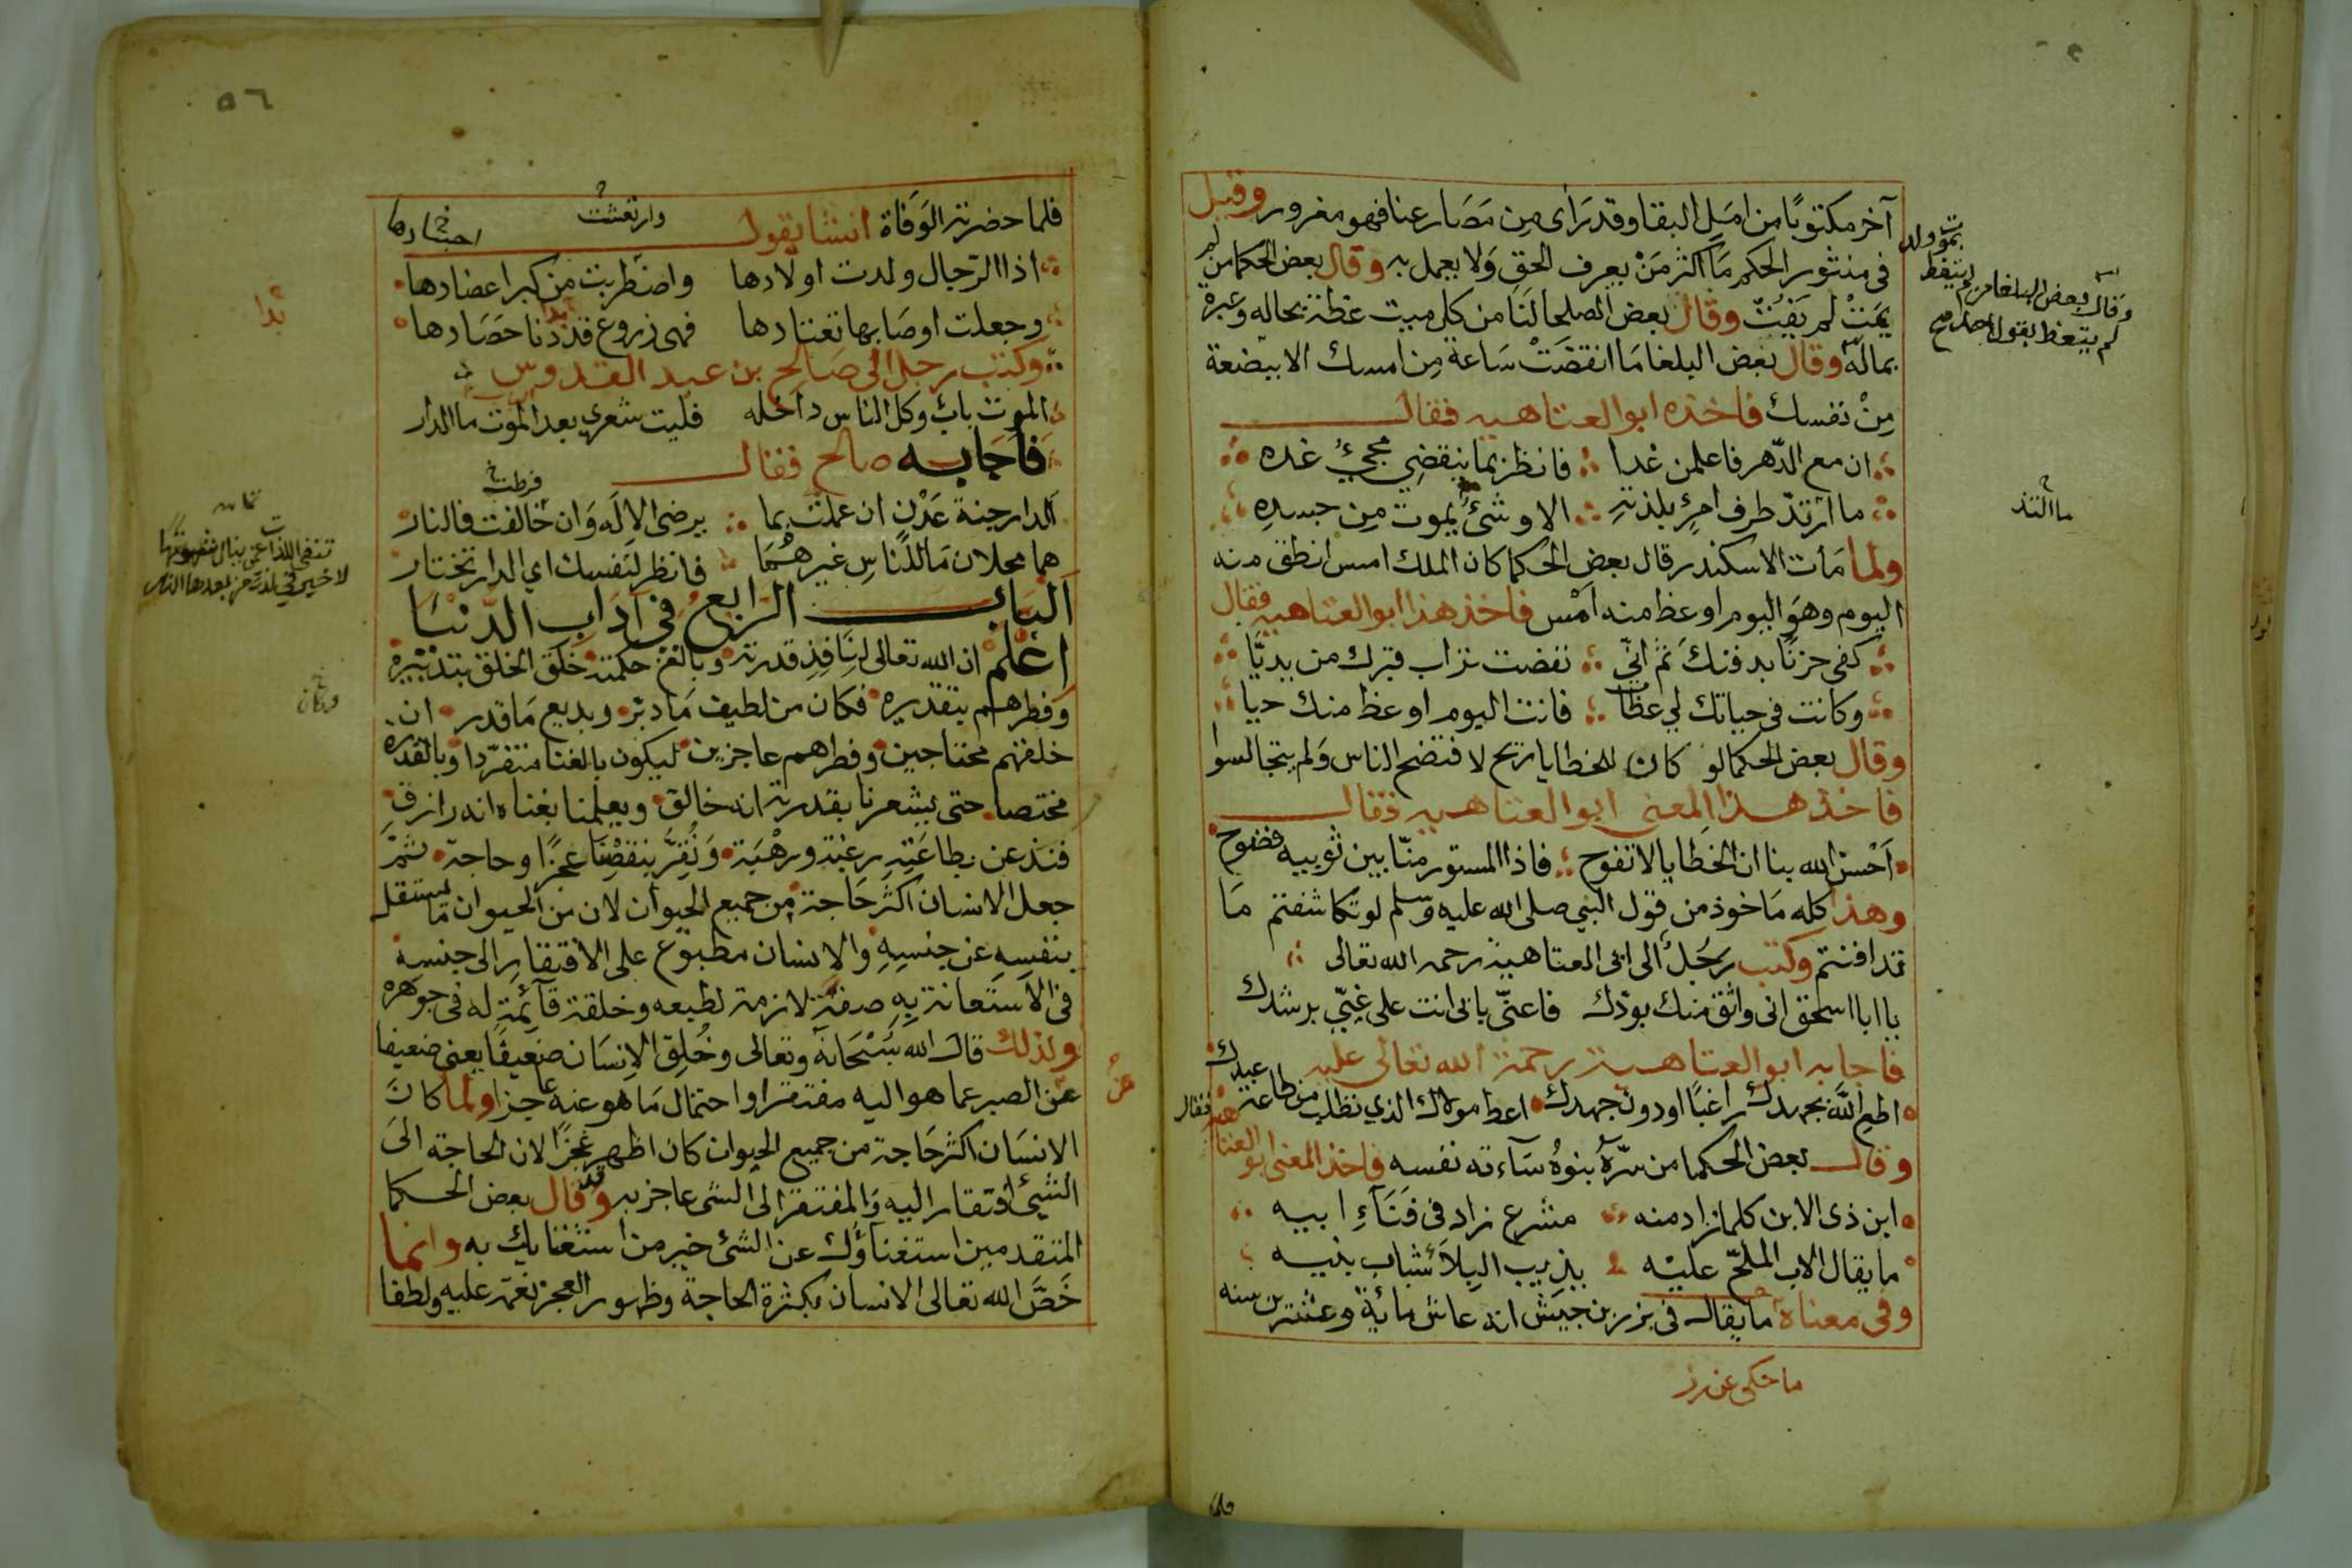 آخر مكتوبًا من امَل البقا وقد رَاى مِن مَصَارعنا فهو مغرور وقيل
فى منثور الحكم مَا اكثر مَنْ يعرف الحق وَلا يعمل به وقال بعض الحكما من لم
يَمُتْ لم يَفُتْ وقال بعض الصلحا لنَا من كل ميت عظة بحاله وعبرة
بماله وقال بعض البلغا مَا انقضَتْ سَاعة مِن امسك الا ببضعة
مِنْ نفسك فاخذه ابو العتاهيه فقال
ان مع الدّهر فاعلمن غدا فانظر بما ينقضِي مجيُ غده
ما ارتدّ طرف امرِئٍ بلذته الا وشئٌ يموت مِن جسدِهِ
ولما مَات الاسكندر قال بعض الحكما كان الملك امس انطق منه
اليوم وهوَ اليوم اوعظ منه اَمْس فاخذ هذا ابو العتاهيه فقال
كفى حزنًا بدفنكَ ثم انّي نفضت تراب قبرك من يديَّا
وكانت فى حياتك لي عظات فانت اليوم اوعظ منك حيا
وقال بعض الحكما لو كان للخطايا ريح لافتضح الناس وَلم يتجالسوا
فاخذ هذا المعنى ابو العتاهيه فقال
اَحْسن الله بنا ان الخطَايا لا تفوح فاذا المستور منّا بين ثوبيه فضوح
وهذا كله مَاخوذ من قول النبي صلى الله عليه وسلم لو تكاشفتم مَا
تدافنتم وكتب رجُل الى ابى العتاهية رحمه الله تعالى
يا ابا اسحق انى واثق منك بودّك فاعنّي بابى انت على غيّي برشدك
فاجابه ابو العتاهية رحمة الله تعالى عليه
اطع اللَّه بجهدك راغبًا او دون جهدك اعط مولاك الذي تطلب من طاعة عبدك
وقال بعض الحكما من سرّهُ بنوهُ سَاءته نفسه فاخذ المعنى ابو العتاهية فقال
ابن ذى الابن كلما زاد منه مشرع زاد فى فنَآءِ ابيه
ما بقاء الاب الملحّ عليْه بدبيب البِلاَ شباب بنيه
وفى معناه ما يقال فى زر بن حبيش انه عاش مائة وعشرين سنه
ما حكى عن زر
يمُوت ولد
لم يتعظ
وقال بعض البلغا من لم
لم يتعظ بقول احد صح
ما التذ
٥٦
فلما حضرته الوَفاة انشا يقول
وارتعشت
اجسادها
اذا الرّجال ولدت اولادها واضطربت من كبر اعضادها
وجعلت اوصَابها تعتادها فهى زروع قد دنا حَصَادها
بدا
وكتب رجل الى صَالح بن عبد القدوس
الموت باب وكل الناس داخله فليت شعري بعد الموت ما الدار
فاجابه صالح فقال
فرطت
الدار جنة عَدْن ان عملت بما يرضى الالَه وَان خالفت فالنار
هما محلان مَا للنَّاسِ غيرهُمَا فانظر لنَفسك اي الدار تختار
الباب الرابع فى آداب الدّنيَا
اعْلم ان الله تعالى لِنَافِذِ قدرته وبالغ حكمته خلق الخلق بتدبيره
وَفطرهم بتقديره فكان من لطيف مَا دبّر وبديع مَا قدر ان
خلقهم محتاجين وفطرهم عاجزين ليكون بالغنا متفرّدا وبالقدره
مختصا حتى يشعرنا بقدرته انه خالق ويعلمنا بغناه انه رازق
فنذعن بطاعَتِهِ رغبَة ورهْبَة وَنُقِرَّ بنقصِنَا عجزًا وحاجة ثمَّ
جعل الانسان اكثر حَاجة من جميع الحيوان لان من الحيوان مَا يستقل
بنفسِهِ عن جنسِهِ والانسان مطبوُع على الافتقارِ الى جنسه
فى الاستعانة بِهِ صفة لازمة لطبعه وخلقة قآئمة له فى جوهره
ولذلك قال الله سُبْحَانه وتعالى وخُلِق الاِنسَان ضعيفًا يعنى ضعيفا
عن الصبر عما هو اليه مفتقرا واحتمال مَا هو عنه عاجزا ولما كانَ
الانسَان اكثر حَاجة من جميع الحيوان كان اظهر عجزًا لان الحاجة الىَ
الشيئ افتقار اليه وَالمفتقر الى الشى عاجز به وقد قال بعض الحكما
المتقدمين استغنآؤك عن الشئ خير من استغنايك به وانما
خَصَّ الله تعالى الانسان بكثرة الحاجة وظهور العجز نعمة عليه ولطفا
بدا
تفنى اللذاذة ممن ينال شهوتها
لا خير فى لذة من بعدها النار
وكان
عن